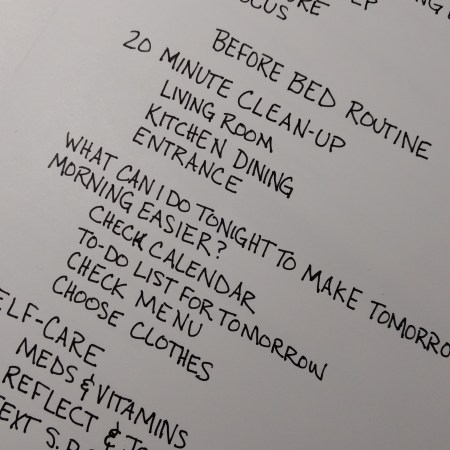 OCUS
BEFORE BED ROUTINE
20 MINUTE CLEAN-UP
LIVING ROOM
KITCHEN DINING
ENTRANCE
WHAT CAN I DO TONIGHT TO MAKE TOMORRO
MORNING EASIER?
CHECK CALENDAR
TO-DO LIST FOR TOMORROW
CHECK MENU
CHOOSE CLOTHES
ELF-CARE
MEDS & VITAMINS
REFLECT &
EXT S.